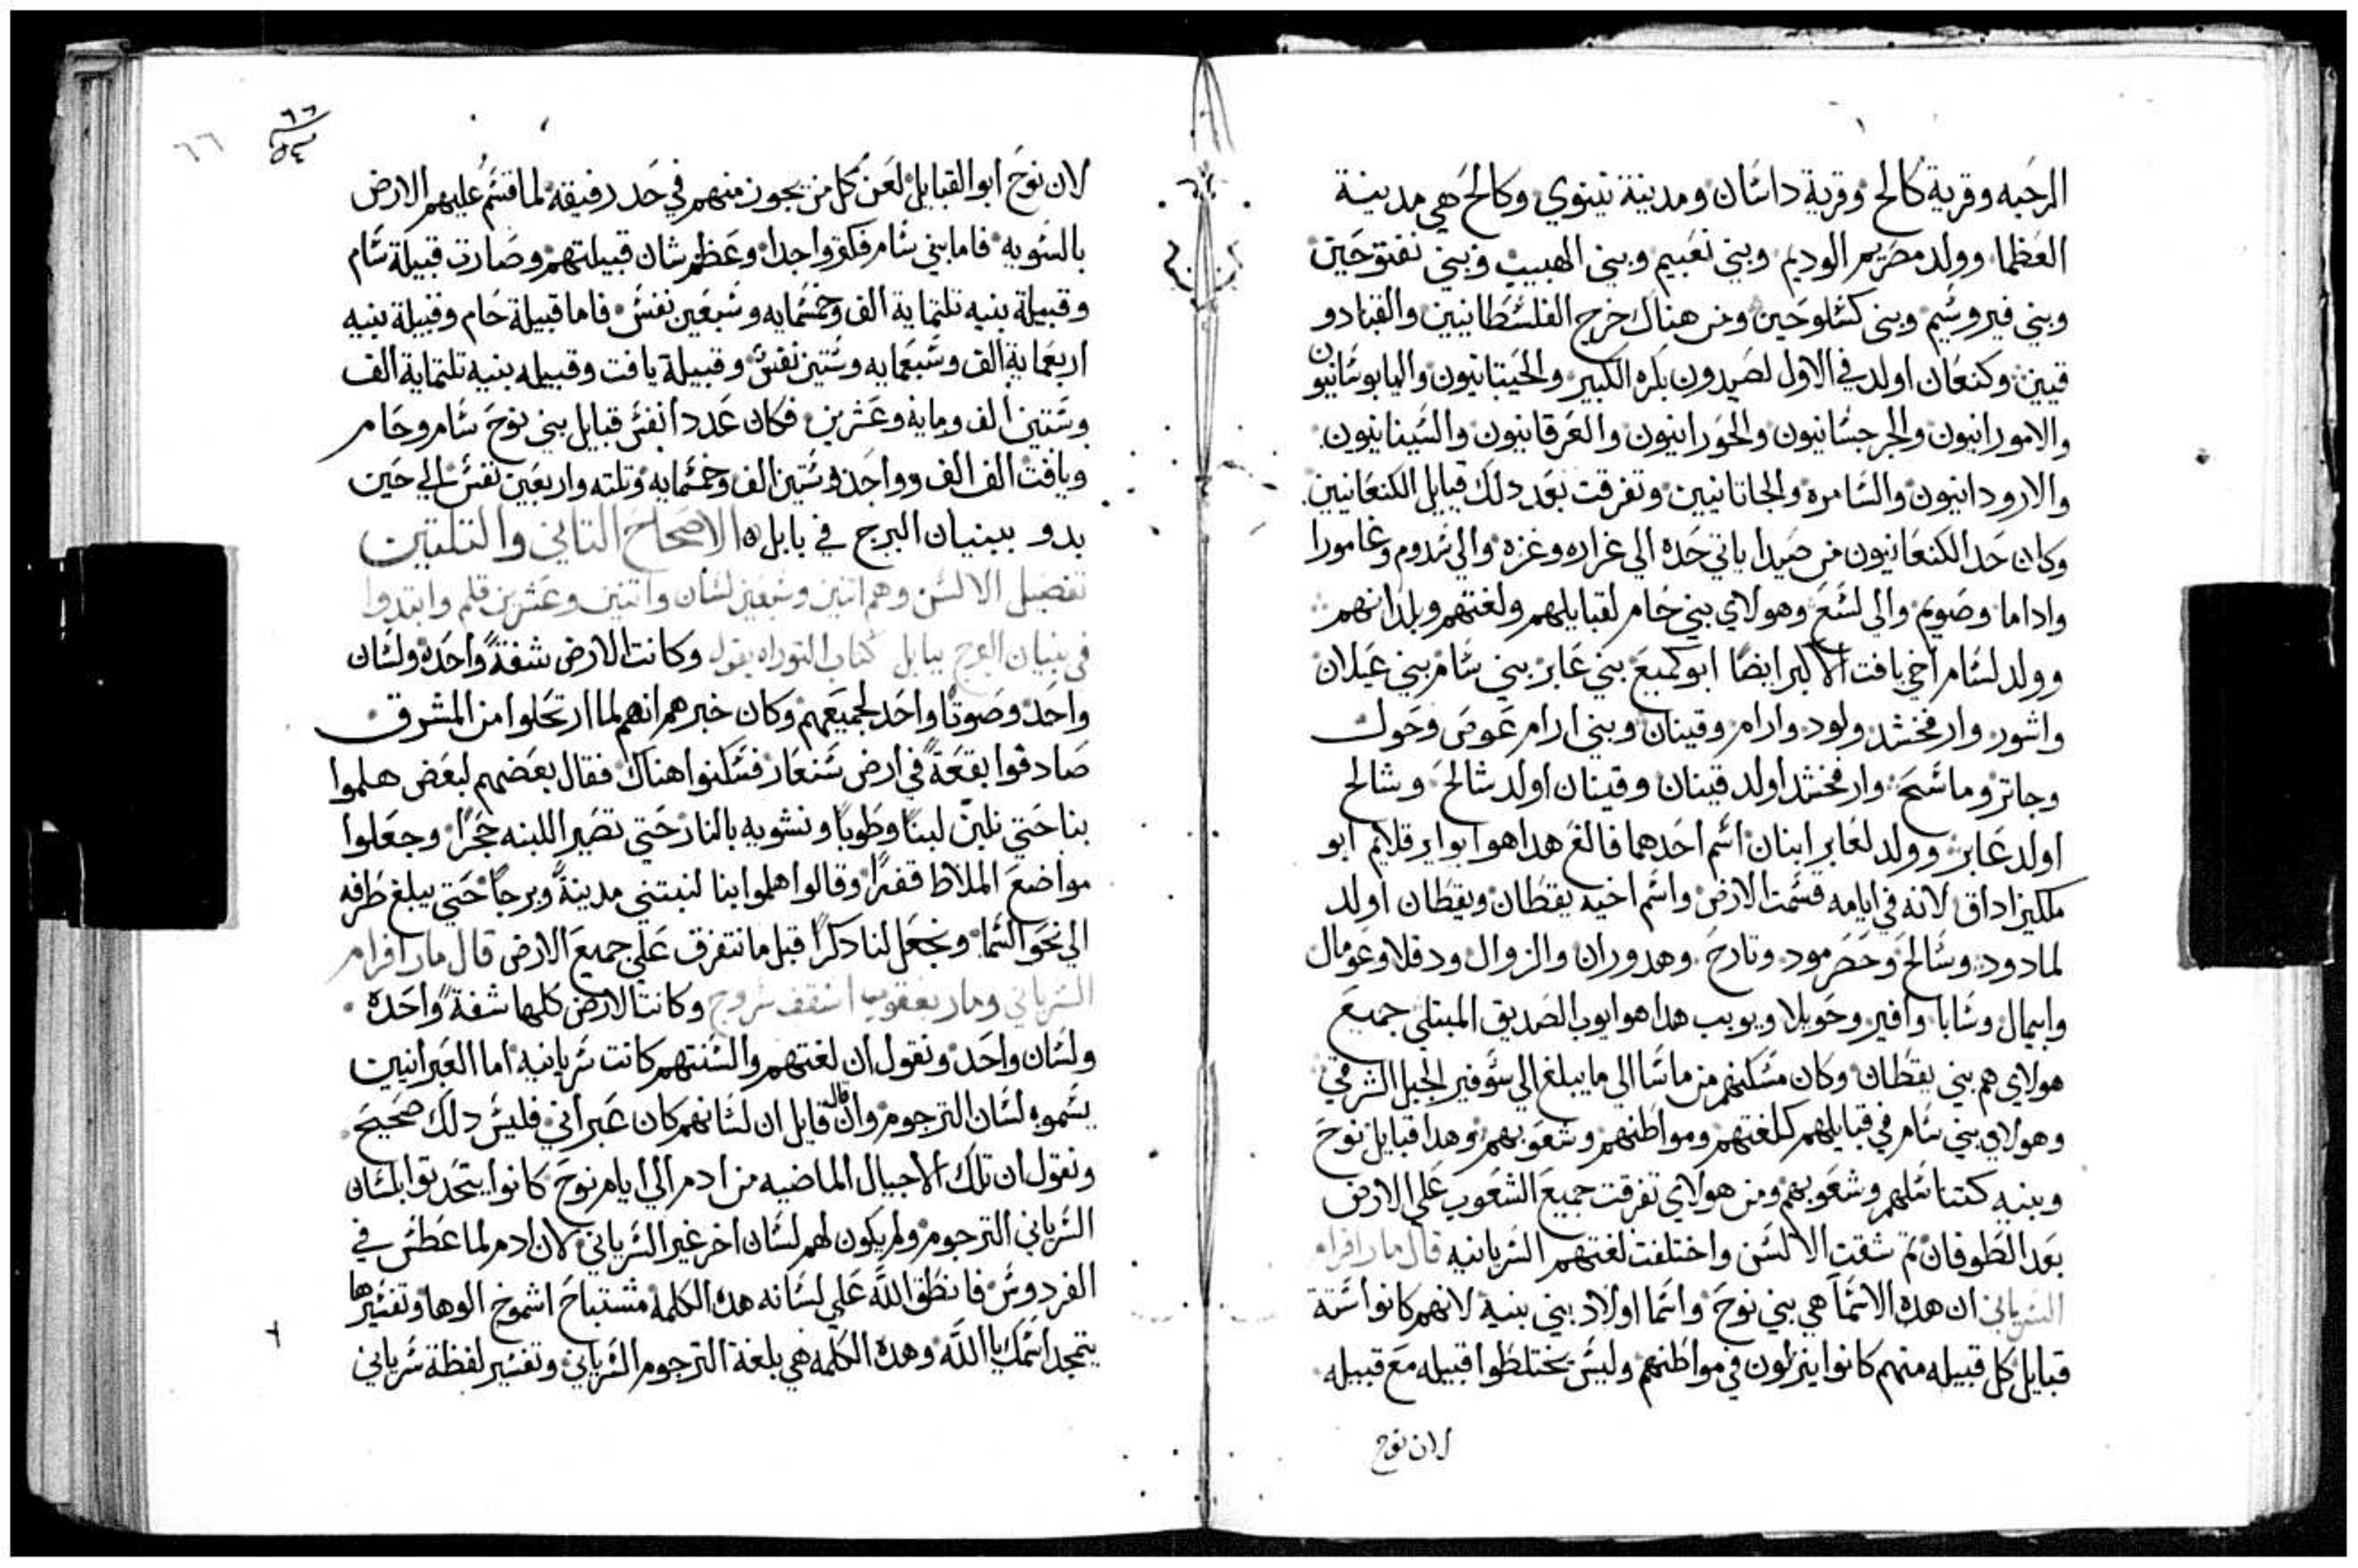 الرحبه وقرية كالح وقرية داسان ومدينة نينوي وكالح هي مدينة
العظما وولد مصريم الوديم وبني نعبيم وبني الهبيب وبني نفتوحين
وبني فيروسيم وبني كسلوحين ومن هناك خرج الفلسطانيين والقنادو
قيين وكنعان اولد في الاول لصيدون بكره الكبير والحيتانيون واليابوسانيون
والامورانيون والجرجسانيون والحورانيون والعرقانيون والسينانيون
والارودانيون والسامره والحاتانيين وتفرقت بعد دلك قبايل الكنعانيين
وكان حد الكنعانيون من صيدا ياتي حده الي غراره وغزه والي سدوم وغامورا
واداما وصويم والي لسع وهولاي بني حام لقبايلهم ولغتهم وبلدانهم
وولد لسام اخي يافت الاكبر ايضا ابو كميع بني عابر بني سام بني عيلان
واشور وارفخشد ولود وارام وقينان وبني ارام عوص وحول
وجاتر وماسح وارفخشد اولد قينان وقينان اولد شالح وشالح
اولد عابر وولد لعابر ابنان اسم احدهما فالغ هدا هو ابو ايرقلايم ابو
ملكيزاداق لانه في ايامه قسمت الارض واسم اخيه يقطان ويقطان اولد
لمادود وسالح وحضرمود وتارح وهدوران والزوال ودقلا وعومال
وابيمال وسابا وافير وحويلا ويوبب هدا هو ايوب الصديق المبتلي جميع
هولاي هم بني يقطان وكان مسكنهم من ماسا الي ما يبلغ الي سوفير الجبل الشرقي
وهولاي بني سام في قبايلهم كلغتهم ومواطنهم وشعوبهم وهدا قبايل نوح
وبنيه كتناسلهم وشعوبهم ومن هولاي تفرقت جميع الشعوب علي الارض
بعد الطوفان تم شقت الالسن واختلفت لغتهم السريانيه قال مار افرام
السرياني ان هده الاسما هي بني نوح واسما اولاد بني بنيه لانهم كانوا ستة
قبايل كل قبيله منهم كانوا ينزلون في مواطنهم وليس يختلطوا قبيله مع قبيله
لان نوح
٦٦
٦٦
لان نوح ابو القبايل لعن كل من يجوز منهم في حد رفيقه لما قسم عليهم الارض
بالسويه فاما بني سام فكتروا جدا وعظم شان قبيلتهم وصارت قبيلة سام
وقبيلة بنيه تلتماية الف وخمسمايه وسبعين نفس فاما قبيلة حام وقبيلة بنيه
اربعماية الف وسبعمايه وستين نفس وقبيلة يافت وقبيله بنيه تلتماية الف
وستين الف ومايه وعشرين فكان عدد انفس قبايل بني نوح سام وحام
ويافت الف الف وواحد وستين الف وخمسمايه وتلته واربعين نفس الي حين
بدو ببنيان البرج في بابل الاصحاح التاني والتلتين
تفصيل الالسن وهم اتنين وسبعين لسان واتنين وعشرين قلم وابتدوا
في بنيان البرج ببابل كتاب التوراه يقول وكانت الارض شفةً واحده ولسان
واحد وصوتا واحد لجميعهم وكان خبرهم انهم لما ارتحلوا من المشرق
صادفوا بقعةً في ارض سنعار فسكنوا هناك فقال بعضهم لبعض هلموا
بنا حتي نلبن لبنا وطوبا ونشويه بالنار حتي تصير اللبنه حجرا وجعلوا
مواضع الملاط قفرا وقالوا هلموا بنا لنبتني مدينةً وبرجا حتي يبلغ طرفه
الي نحو السما ونجعل لنا دكرا قبل ما نتفرق علي جميع الارض قال مار افرام
السرياني ومار يعقوب اسقف سروج وكانت الارض كلها شفةً واحده
ولسان واحد ونقول ان لغتهم والسنتهم كانت سريانيه اما العبرانيين
يسموه لسان الترجوم وان قال قايل ان لسانهم كان عبراني فليس دلك صحيح
ونقول ان تلك الاجيال الماضيه من ادم الي ايام نوح كانوا يتحدتوا بلسان
السرياني الترجوم ولم يكون لهم لسان اخر غير السرياني لان ادم لما عطس في
الفردوس فانطق الله علي لسانه هده الكلمه مشتباح اشموخ الوها وتفسيرها
يتمجد اسمك يا الله وهده الكلمه هي بلغة الترجوم السرياني وتفسير لفظة سرياني